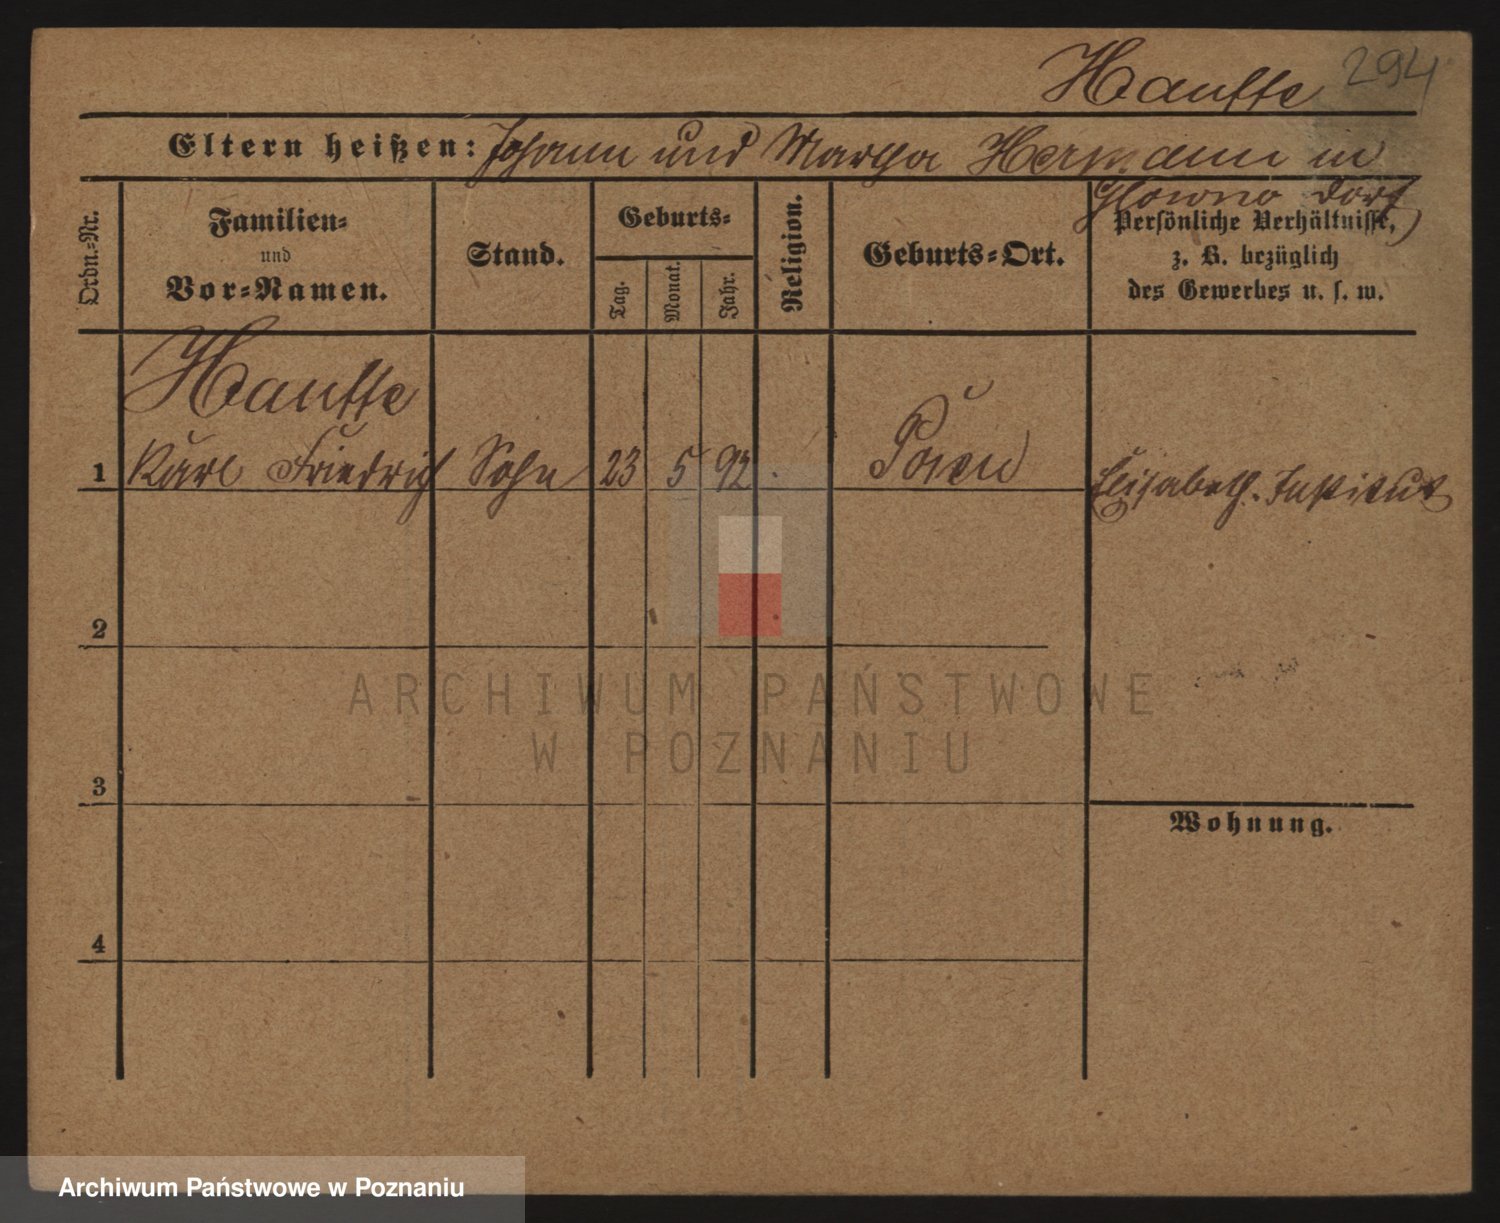 Hauffe 294
Eltern heißen: Johann und Marga Hermann in
Glowno Dorf
Ordn.-Nr.
Familien-
und
Vor-Namen.
Stand.
Geburts-
Tag.
Monat.
Jahr.
Religion.
Geburts-Ort.
Persönliche Verhältnisse,
z. B. bezüglich
des Gewerbes u. s. w.
Hauffe
1 Karl Friedrich Sohn 23 5 92 Posen Elisabeth. Institut
2
ARCHIWUM PAŃSTWOWE
W POZNANIU
3
Wohnung.
4
Archiwum Państwowe w Poznaniu